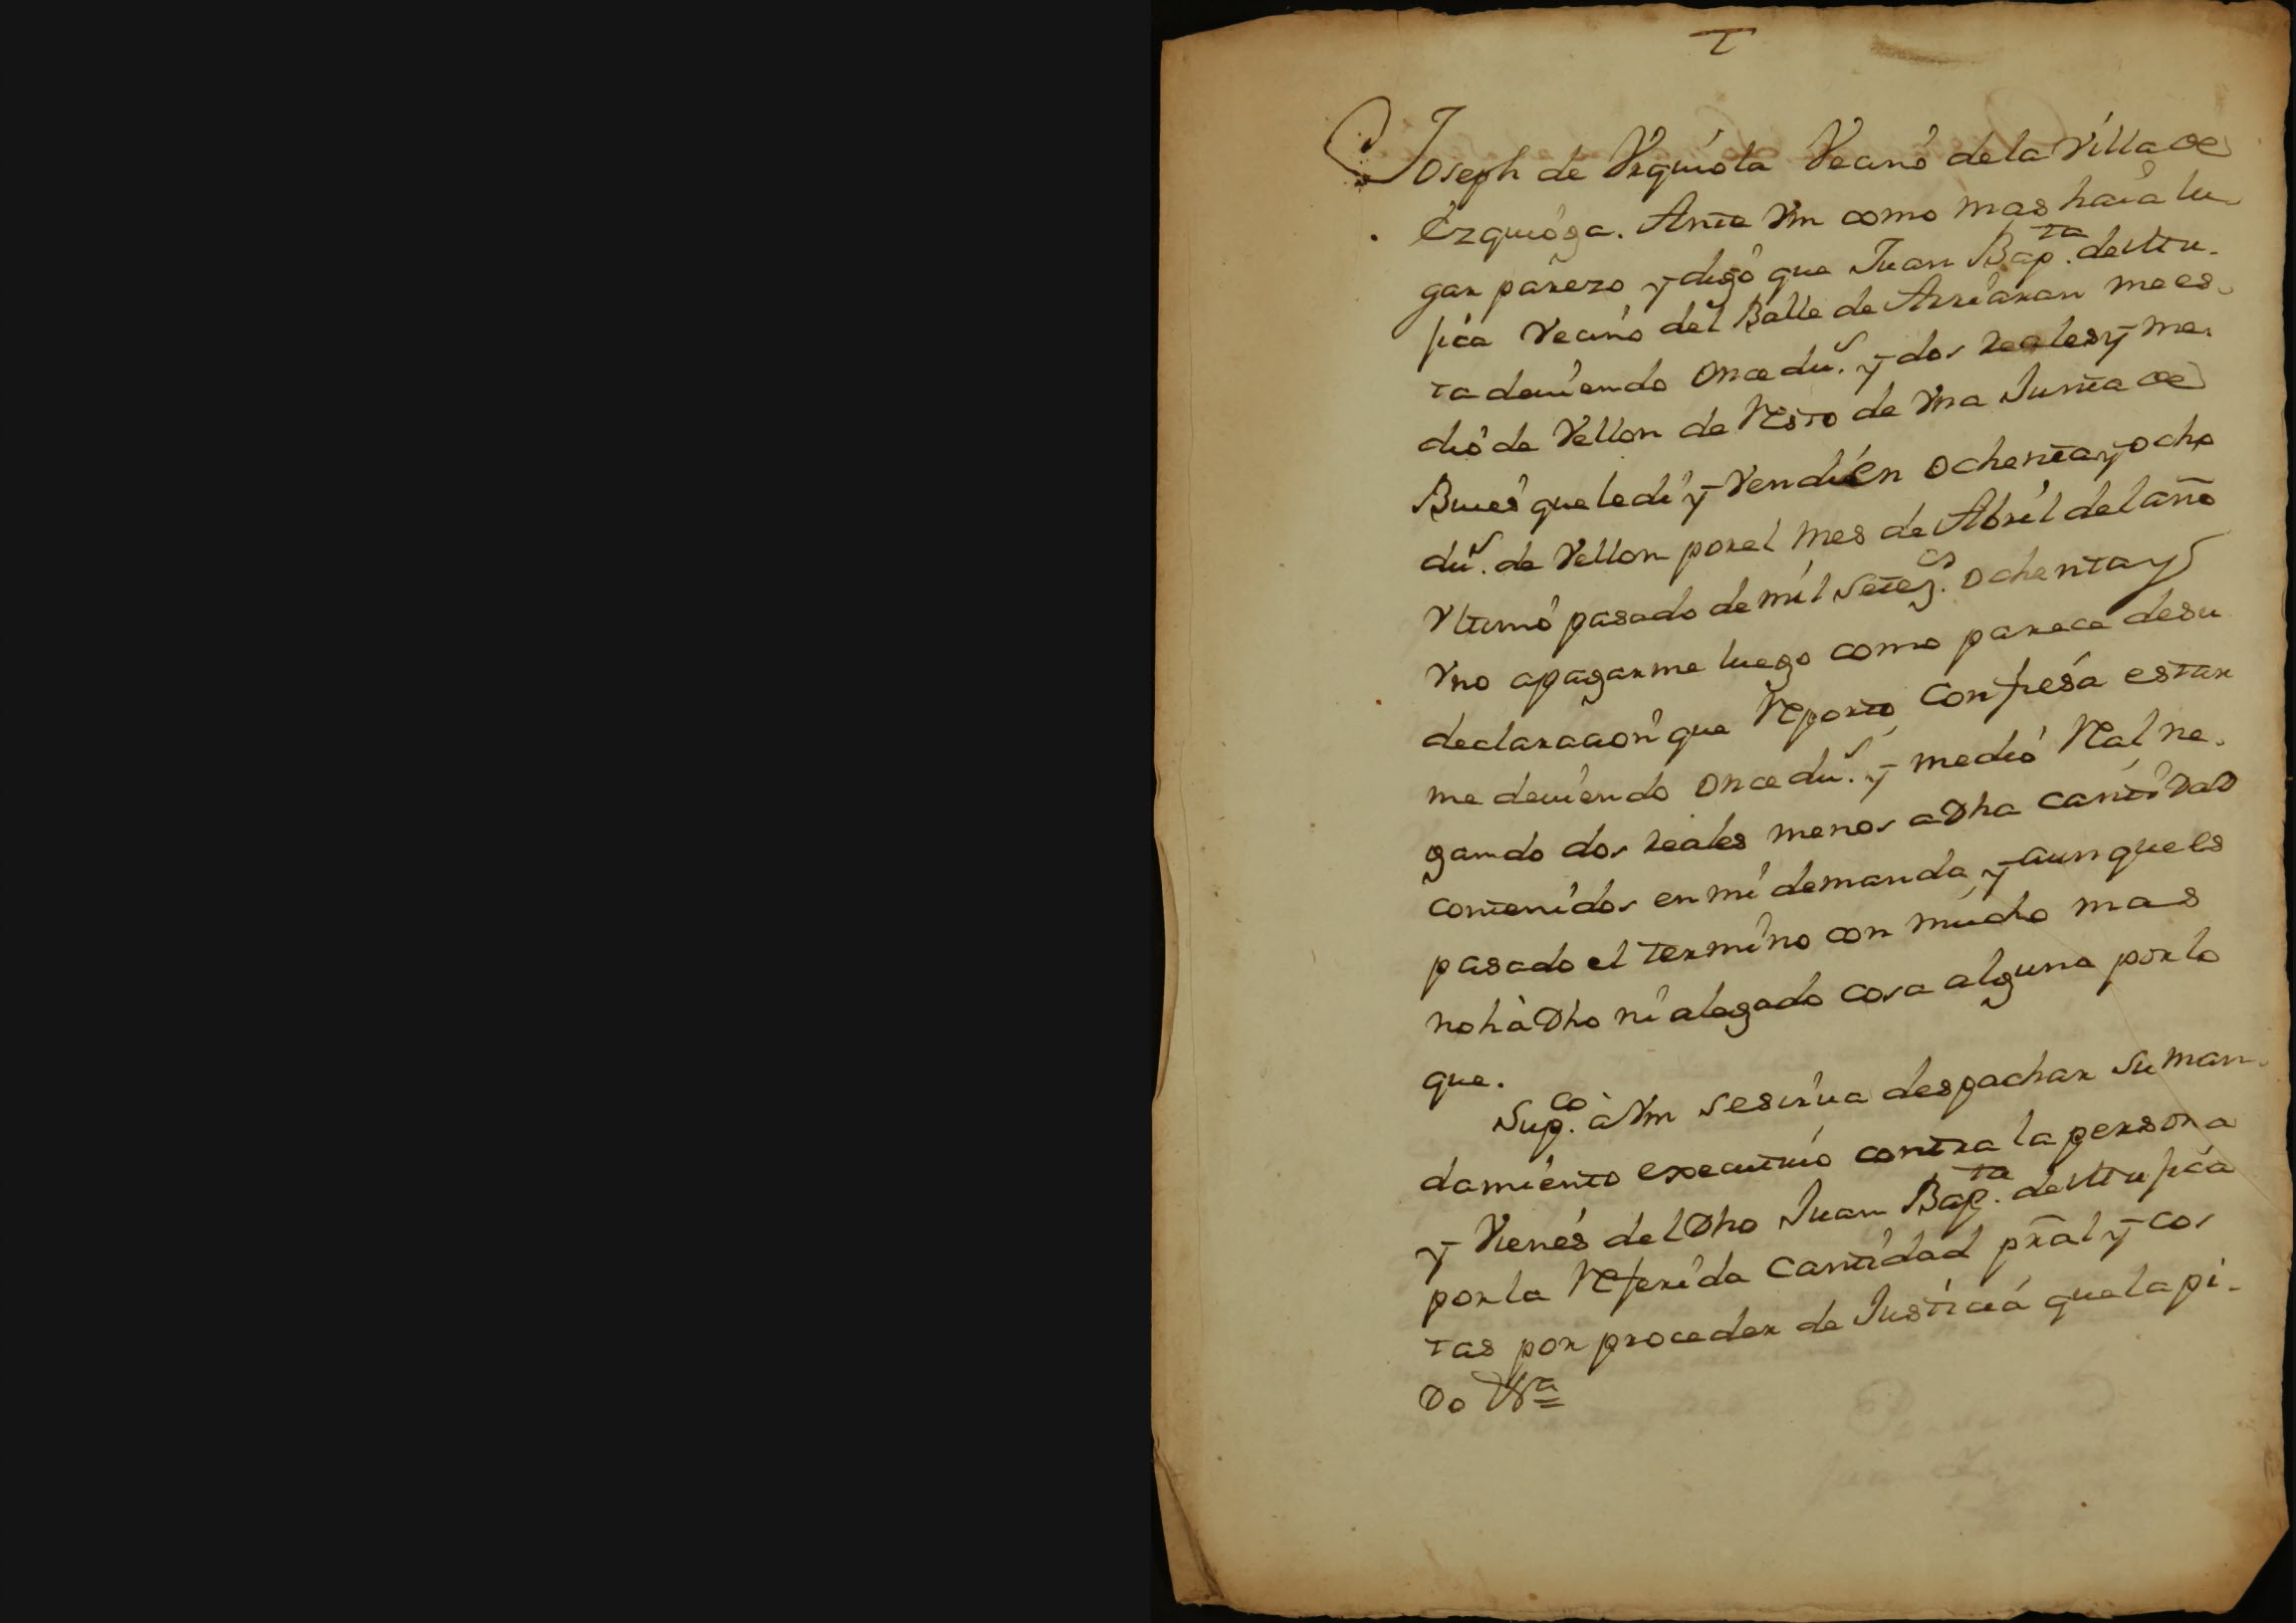 Joseph de Vrquiola Vecino dela Villa de
Ezquioga. Ante Vm como mas haia lu-
gar parezo y digo que Juan Bap.ta de Vtu-
ficia Vecino del Balle de Arriaran me es-
ta deuiendo once du.s y dos reales y me-
dio de Vellon de Resto de Vna Junta de
Bueies que le di y Vendi en ochenta y ocho
du.s de Vellon por el mes de Abril del año
Vltimo pasado de mil Setez.os ochenta y
Vno a pagarme luego como parece de su
declaracion que Reporto confiesa estar
me deuiendo once du.s y medio Real ne-
gando dos reales menos a Dha cantidad
contenidos en mi demanda y aunque es
pasado el termino con mucho mas
no hà Dho ni alegado cosa alguna por lo
que.
Sup.co à Vm se sirua despachar su man-
damiento executiuo contra la persona
y Vienes del Dho Juan Bap.ta de Vtuficia
por la Referida cantidad prãl y cos
tas por proceder de Justicia que la pi-
do Vª